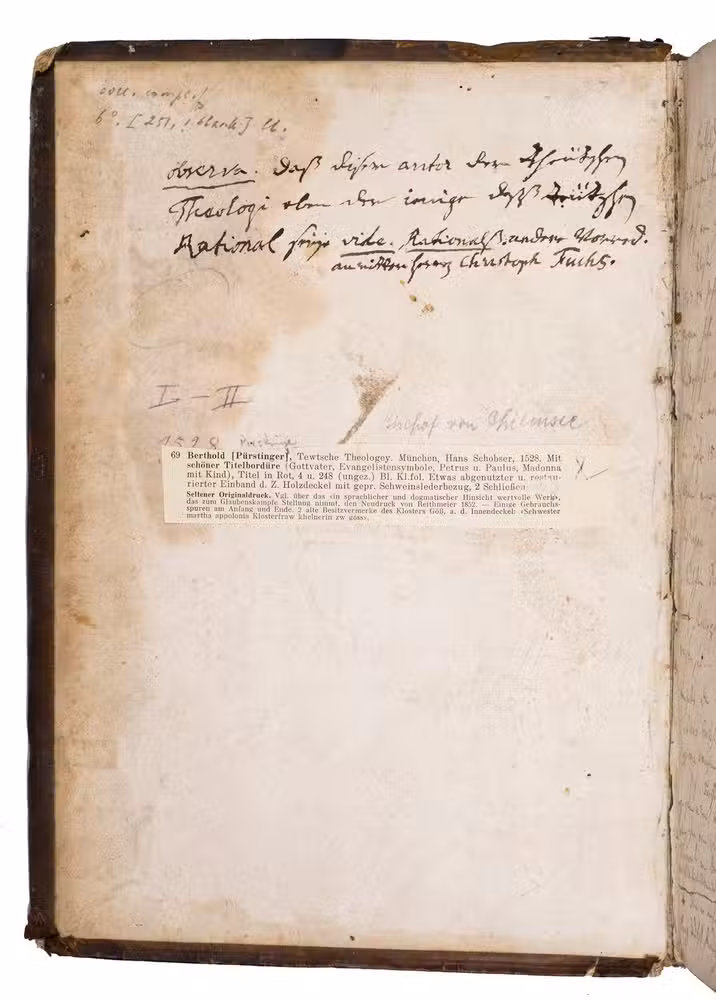 coll. compl.
6°. [251, 1 blank] ll.
observa. daß diser autor der Theütschen
Theologi eben der ienige deß Teütschen
Rational seye vide. Rationalß. andere Vorred.
an Herrn Christoph Fuchs.
I – II
Bischof von Chiemsee
1528
69 Berthold [Pürstinger], Tewtsche Theologey. München, Hans Schobser, 1528. Mit
schöner Titelbordüre (Gottvater, Evangelistensymbole, Petrus u. Paulus, Madonna
mit Kind), Titel in Rot, 4 u. 248 (ungez.) Bl. Kl.fol. Etwas abgenutzter u. restau-
rierter Einband d. Z. Holzdeckel mit gepr. Schweinslederbezug, 2 Schließen
Seltener Originaldruck. Vgl. über das «in sprachlicher und dogmatischer Hinsicht wertvolle Werk»,
das zum Glaubenskampfe Stellung nimmt, den Neudruck von Reithmeier 1852. — Einige Gebrauchs-
spuren am Anfang und Ende. 2 alte Besitzvermerke des Klosters Göß, a. d. Innendeckel: «Schwester
martha appolonis Klosterfraw khelnerin zw göss».